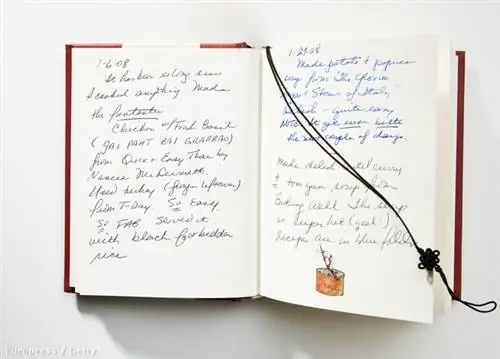 1-6-08
so long since
I cooked anything. Made
the fantastic
Chicken w/Fresh Basil
(GAI PAHT BAI GRAPRAO)
from Quick & Easy Thai by
Nancie McDermott.
Used turkey (frozen leftover)
from T-Day. So Easy.
So FAB Served it
with black forbidden
rice
1-29-08
Made potato + pepper
soup from The Glorious
Soups + Stews of Italy
Delish – quite easy
NOTE: It got even better
the next couple of days.
Made delish curry
+ tom yum soup from
Eating Well. The soup
is super hot (yeah!)
Recipes are in blue folder
Europress / Getty